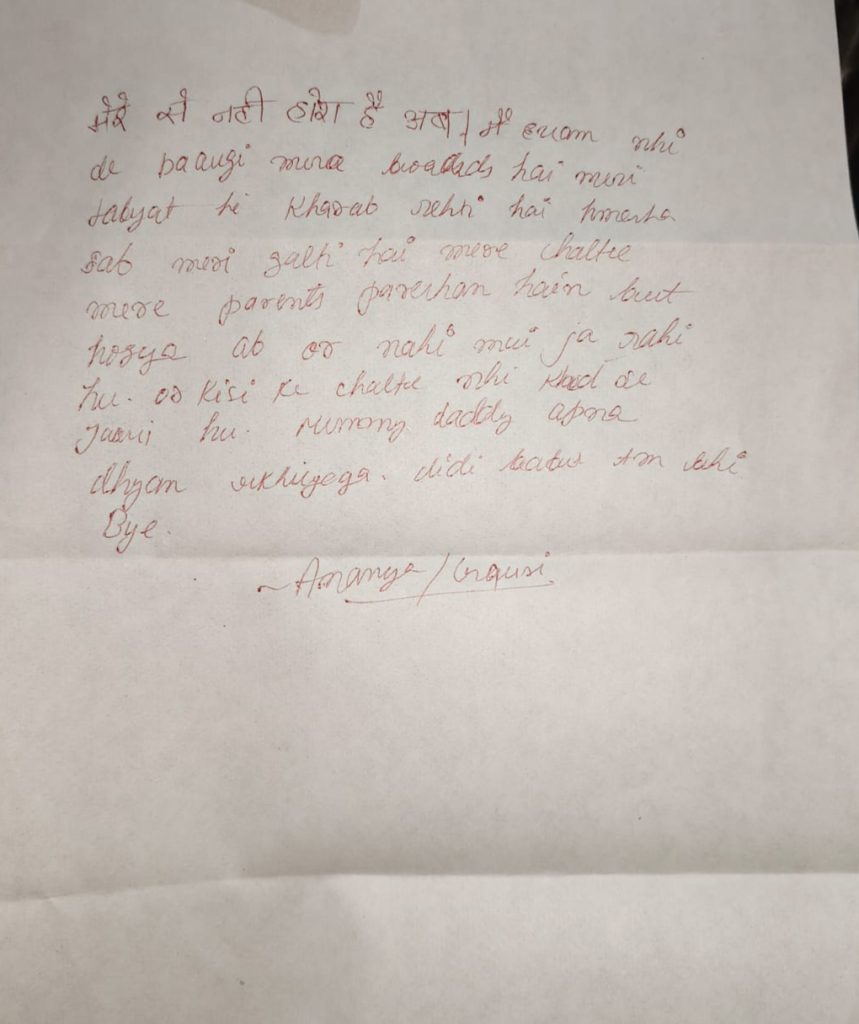 मेरे से नही होरा है अब। मैं exam nhi
de paaugi mera boards hai meri
tabyat hi kharab rehti hai hmesha
sab meri galti hai mere chalte
mere parents pareshan hain but
hogya ab or nahi mai ja rahi
hu. or kisi ke chalte nhi khud se
jaari hu. mummy daddy apna
dhyan rkhiyega. didi babu
Bye.
~ Ananya / Gauri